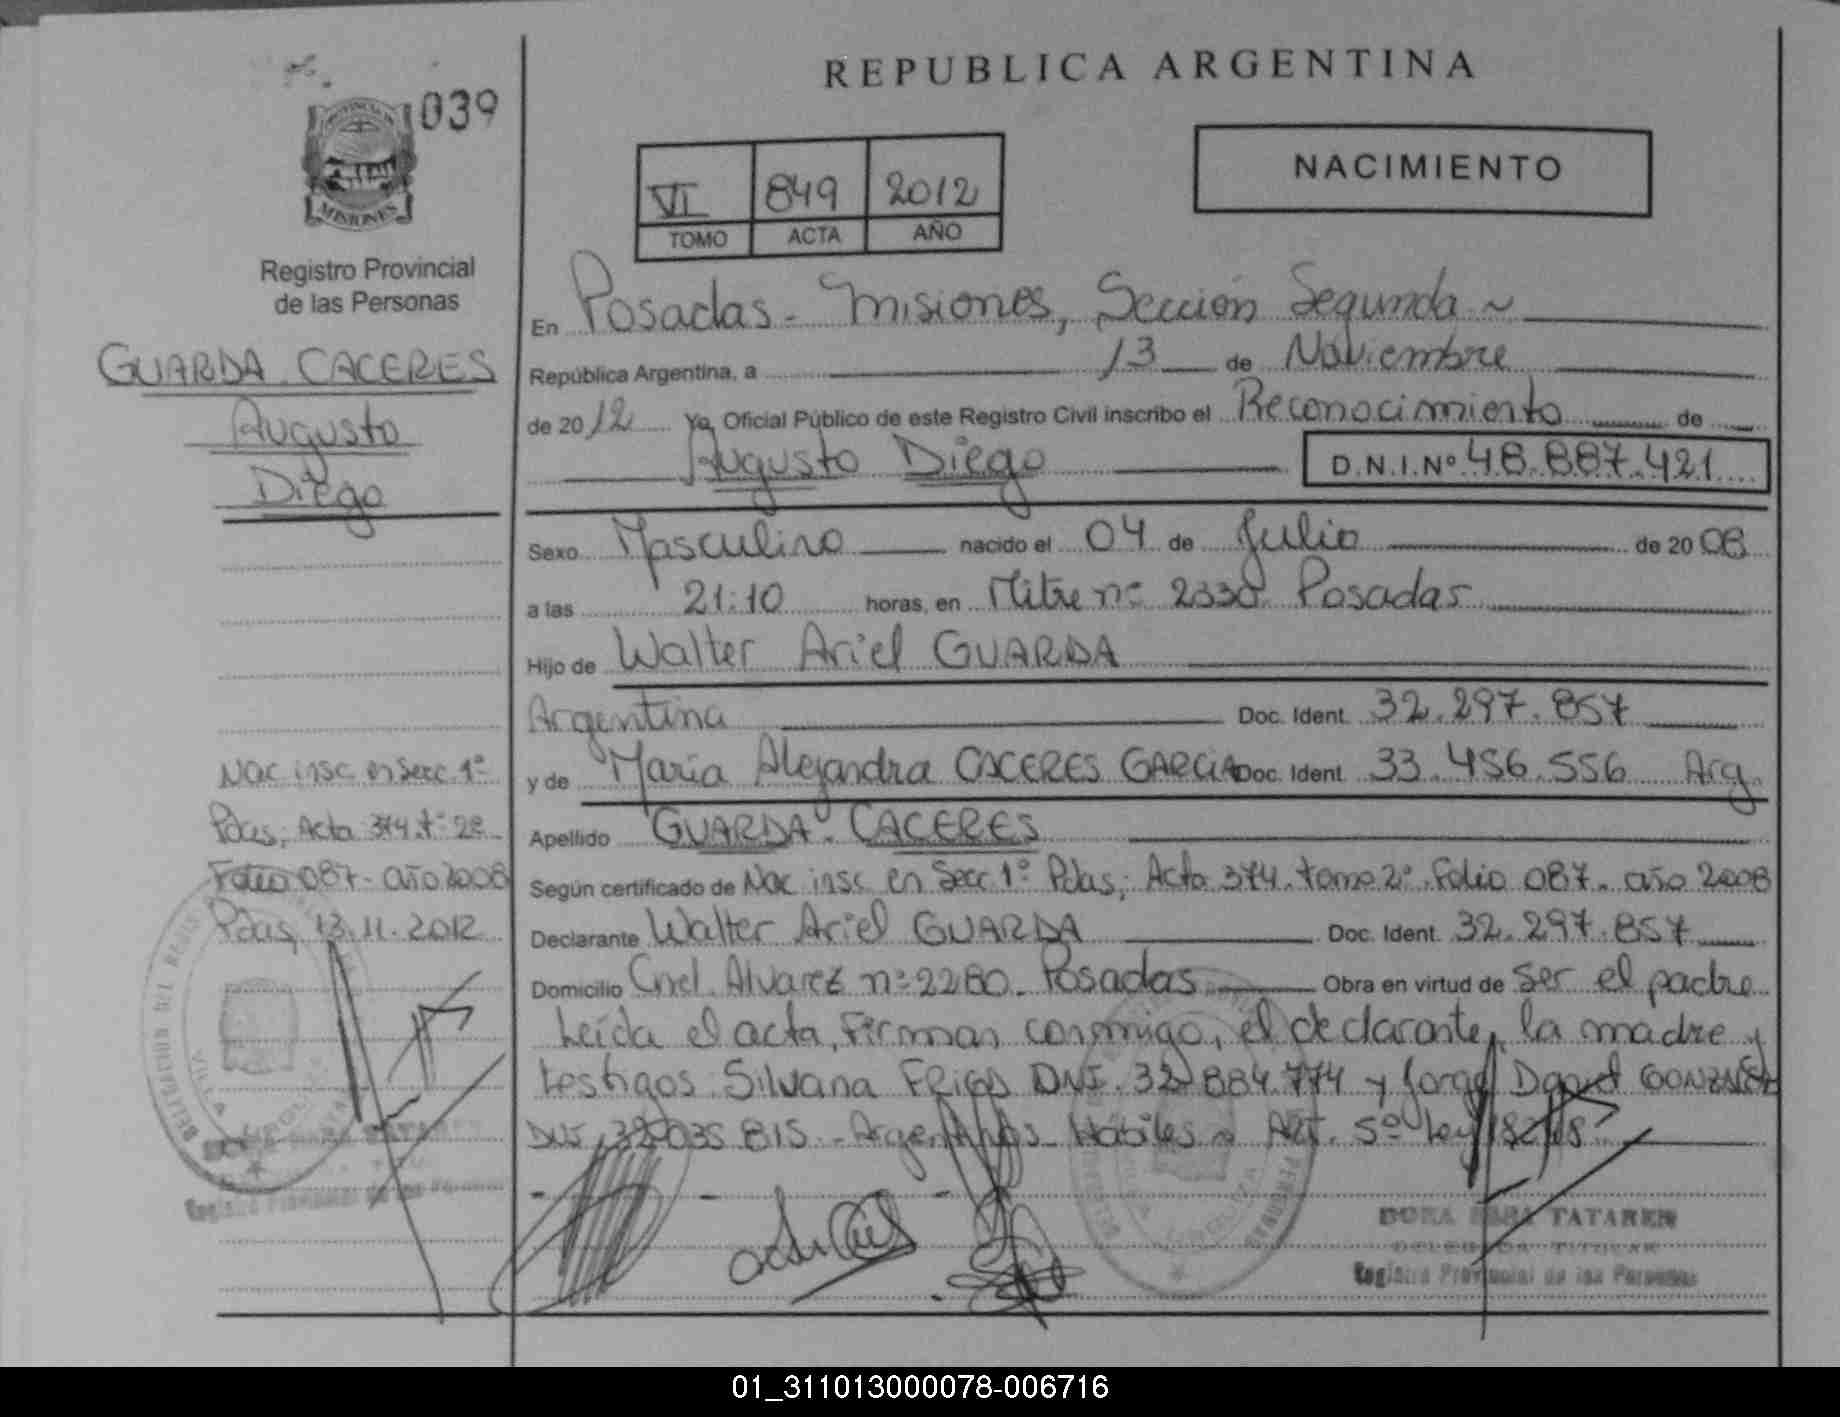 REPUBLICA ARGENTINA
039
PROVINCIA DE
MISIONES
Registro Provincial
de las Personas
VI 849 2012
TOMO ACTA AÑO
NACIMIENTO
GUARDA CACERES
Augusto
Diego
En Posadas - Misiones, Sección Segunda ~
República Argentina, a 13 de Noviembre
de 2012 Yo, Oficial Público de este Registro Civil inscribo el Reconocimiento de
Augusto Diego D.N.I.Nº 48.887.421
Sexo Masculino nacido el 04 de Julio de 2008
a las 21:10 horas, en Mitre nº 2330 Posadas
Hijo de Walter Ariel GUARDA
Argentina Doc. Ident. 32.297.857
y de Maria Alejandra CACERES GARCIA Doc. Ident. 33.456.556 Arg.
Apellido GUARDA CACERES
Según certificado de Nac insc en Secc 1º Pdas, Acta 374. tomo 2º. Folio 087. año 2008
Declarante Walter Ariel GUARDA Doc. Ident. 32.297.857
Domicilio Cnel. Alvarez nº 2280. Posadas Obra en virtud de ser el padre
Leída el acta, firman conmigo, el declarante, la madre y
testigos Silvana FRIGO DNI. 32 884.774 y Jorge Daniel GONZALEZ
DNI 035 815 - Argentinos - Hábiles ~ Art. 5º Ley
Nac insc en Secc 1º
Pdas, Acta 374. tº 2º
Folio 087 - año 2008
Pdas, 13.11.2012
DORA TATAREN
DELEGADA TITULAR
Registro Provincial de las Personas
Registro Provincial de las Personas
01_311013000078-006716